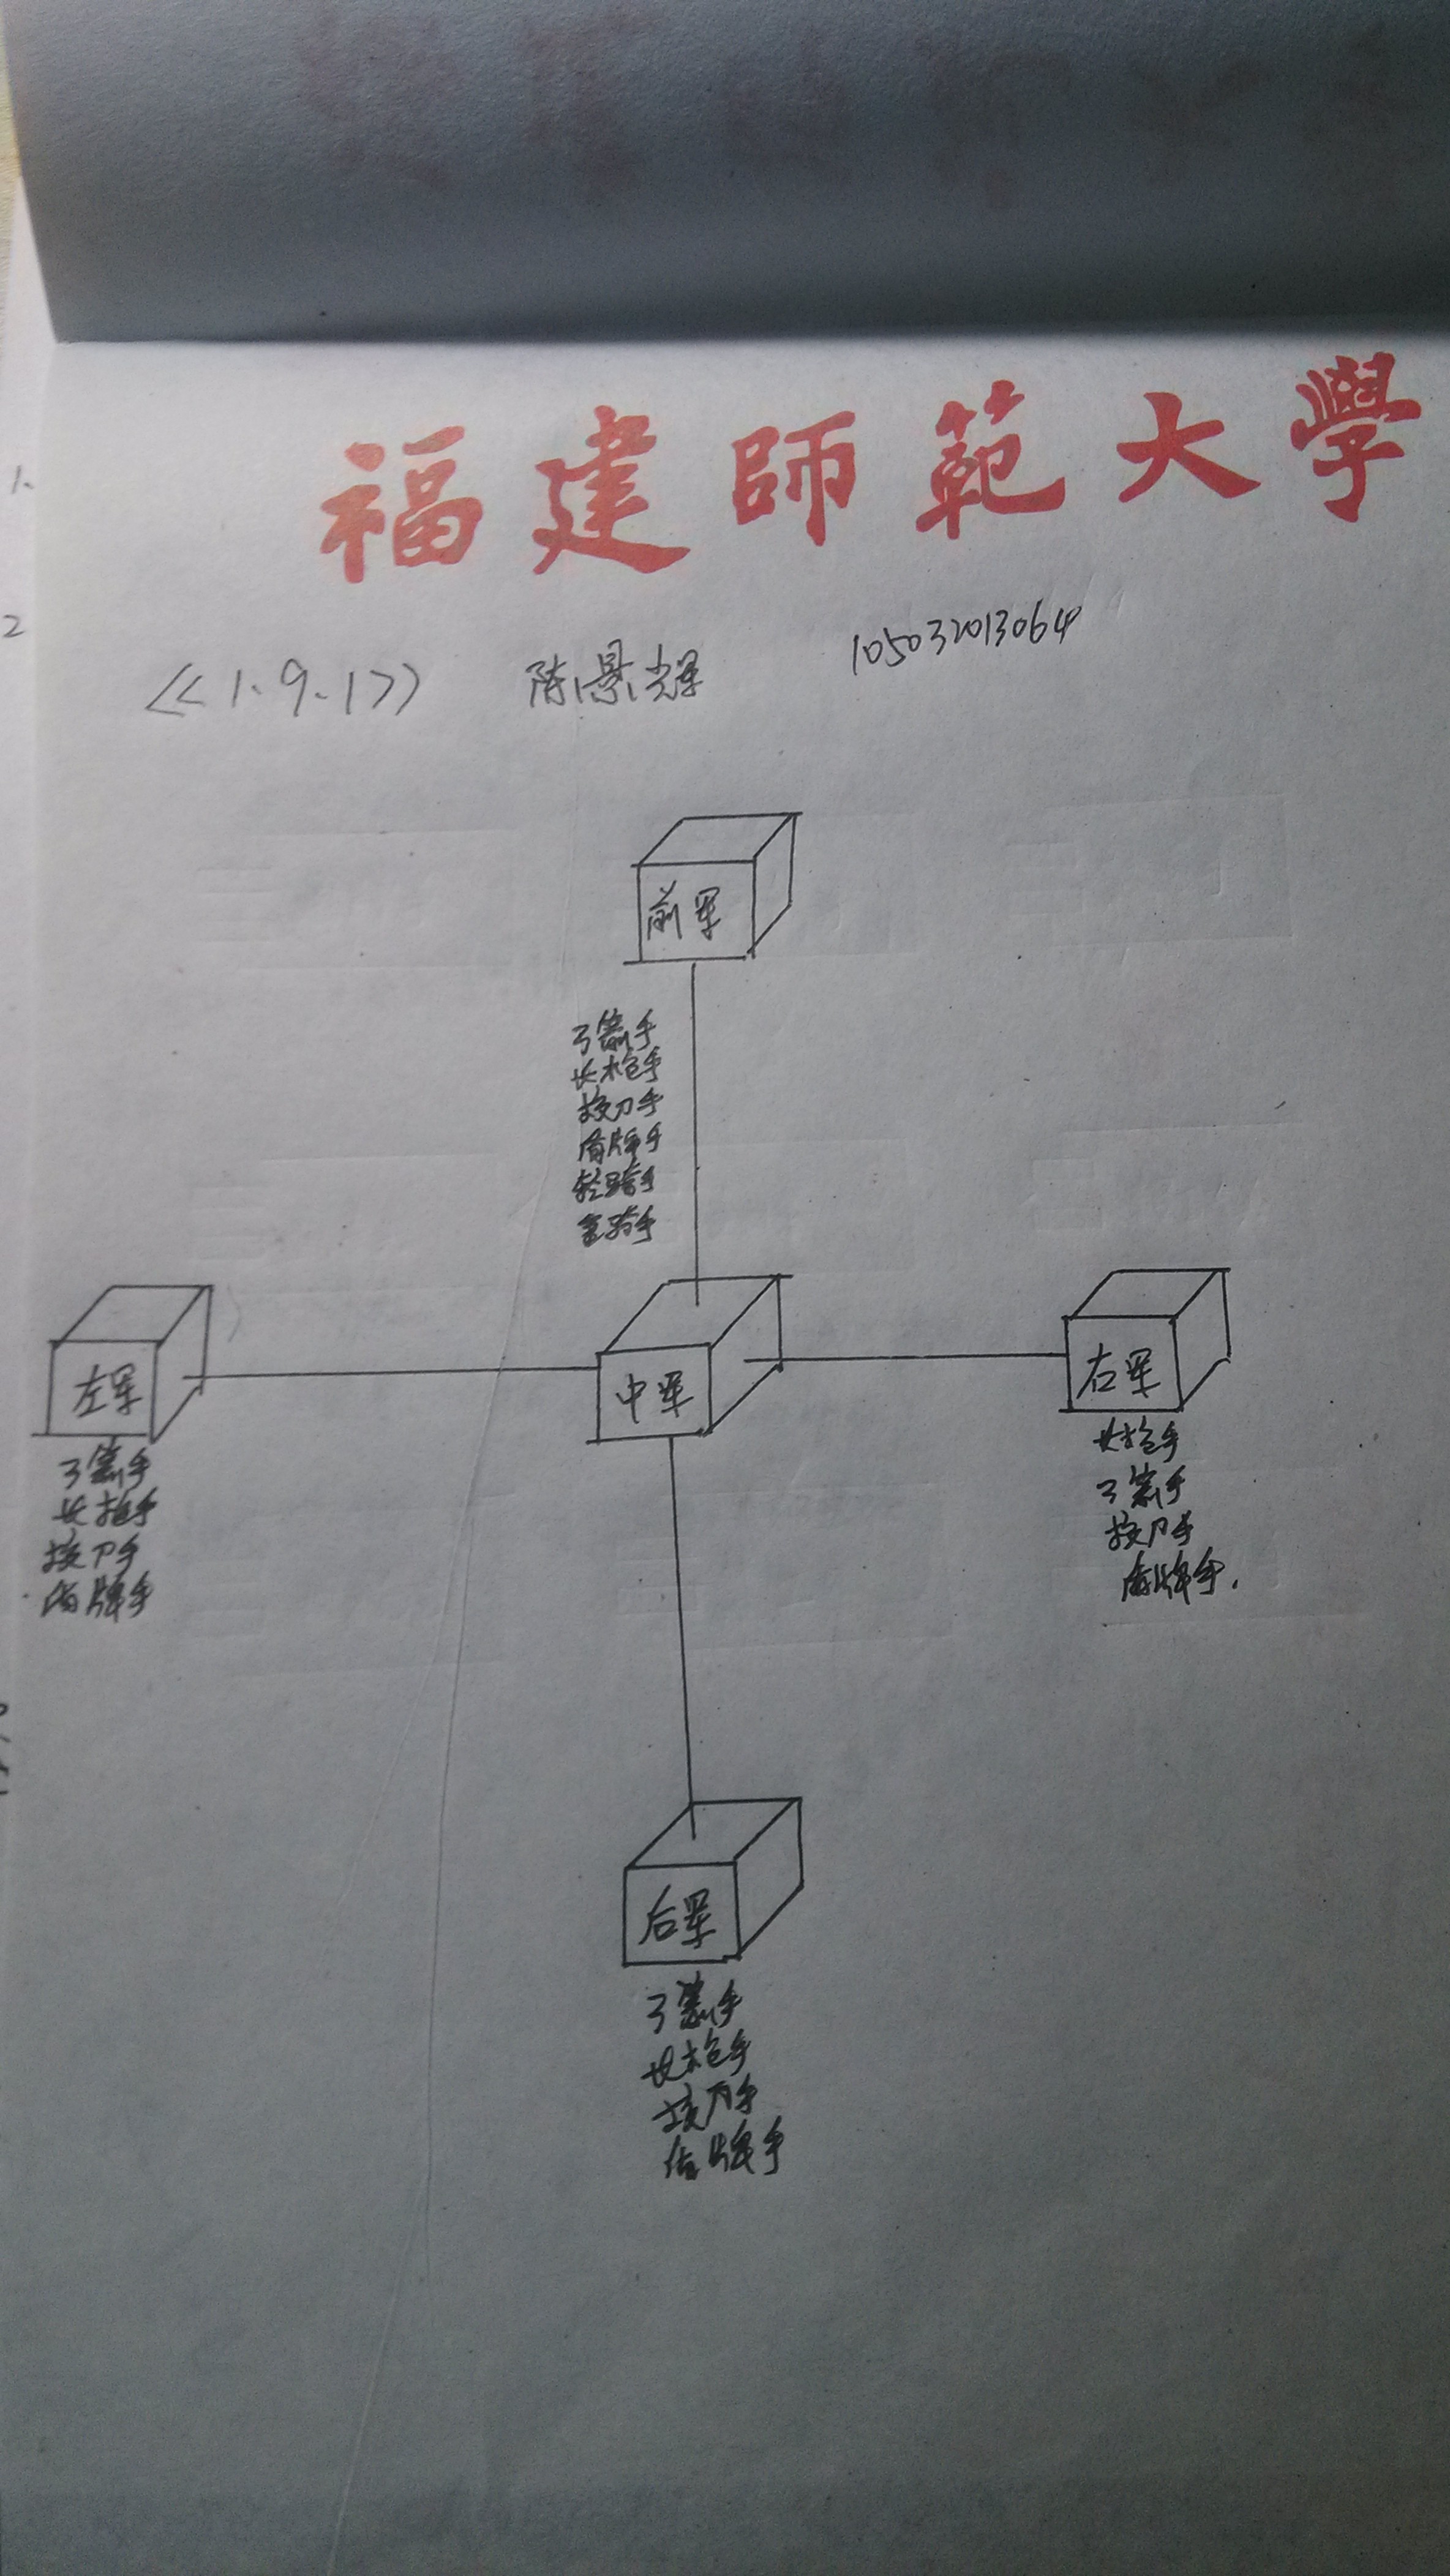 福建師範大學
1.
2
<<1.9.1>> 陈景辉 105032013064
前军
弓箭手
长枪手
按刀手
盾牌手
轻骑手
重骑手
左军
中军
右军
弓箭手
长枪手
按刀手
盾牌手
长枪手
弓箭手
按刀手
盾牌手.
后军
弓箭手
长枪手
按刀手
盾牌手